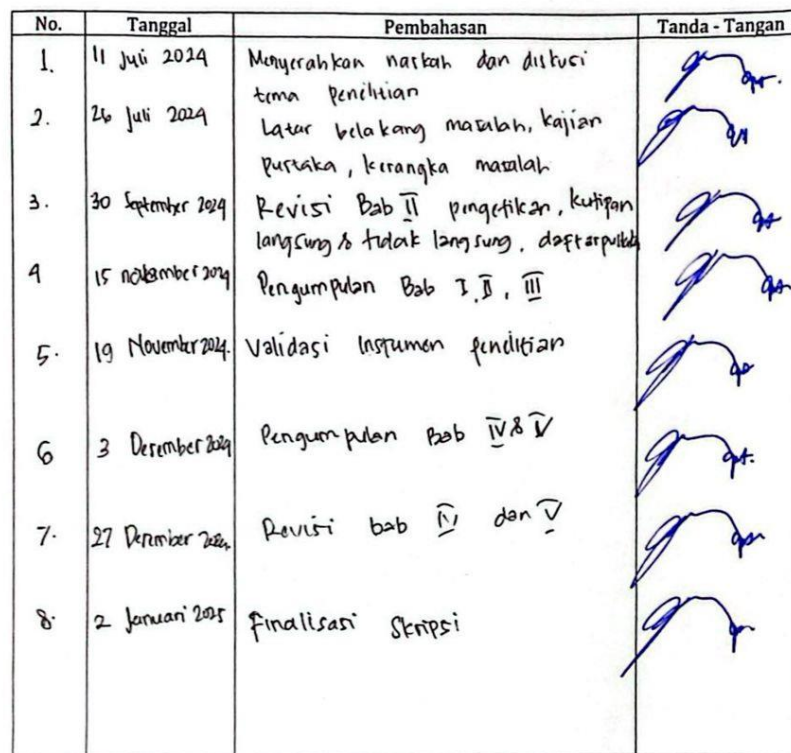 No. Tanggal Pembahasan Tanda - Tangan
1. 11 Juli 2024 Menyerahkan naskah dan diskusi
tema penelitian
2. 26 Juli 2024 Latar belakang masalah, kajian
pustaka, kerangka masalah
3. 30 September 2024 Revisi Bab II pengetikan, kutipan
langsung & tidak langsung, daftar pustaka
4 15 november 2024 Pengumpulan Bab I, II, III
5. 19 November 2024. Validasi Instrumen penelitian
6 3 Desember 2024 Pengumpulan Bab IV & V
7. 27 Desember 2024 Revisi bab IV dan V
8. 2 Januari 2025 Finalisasi Skripsi